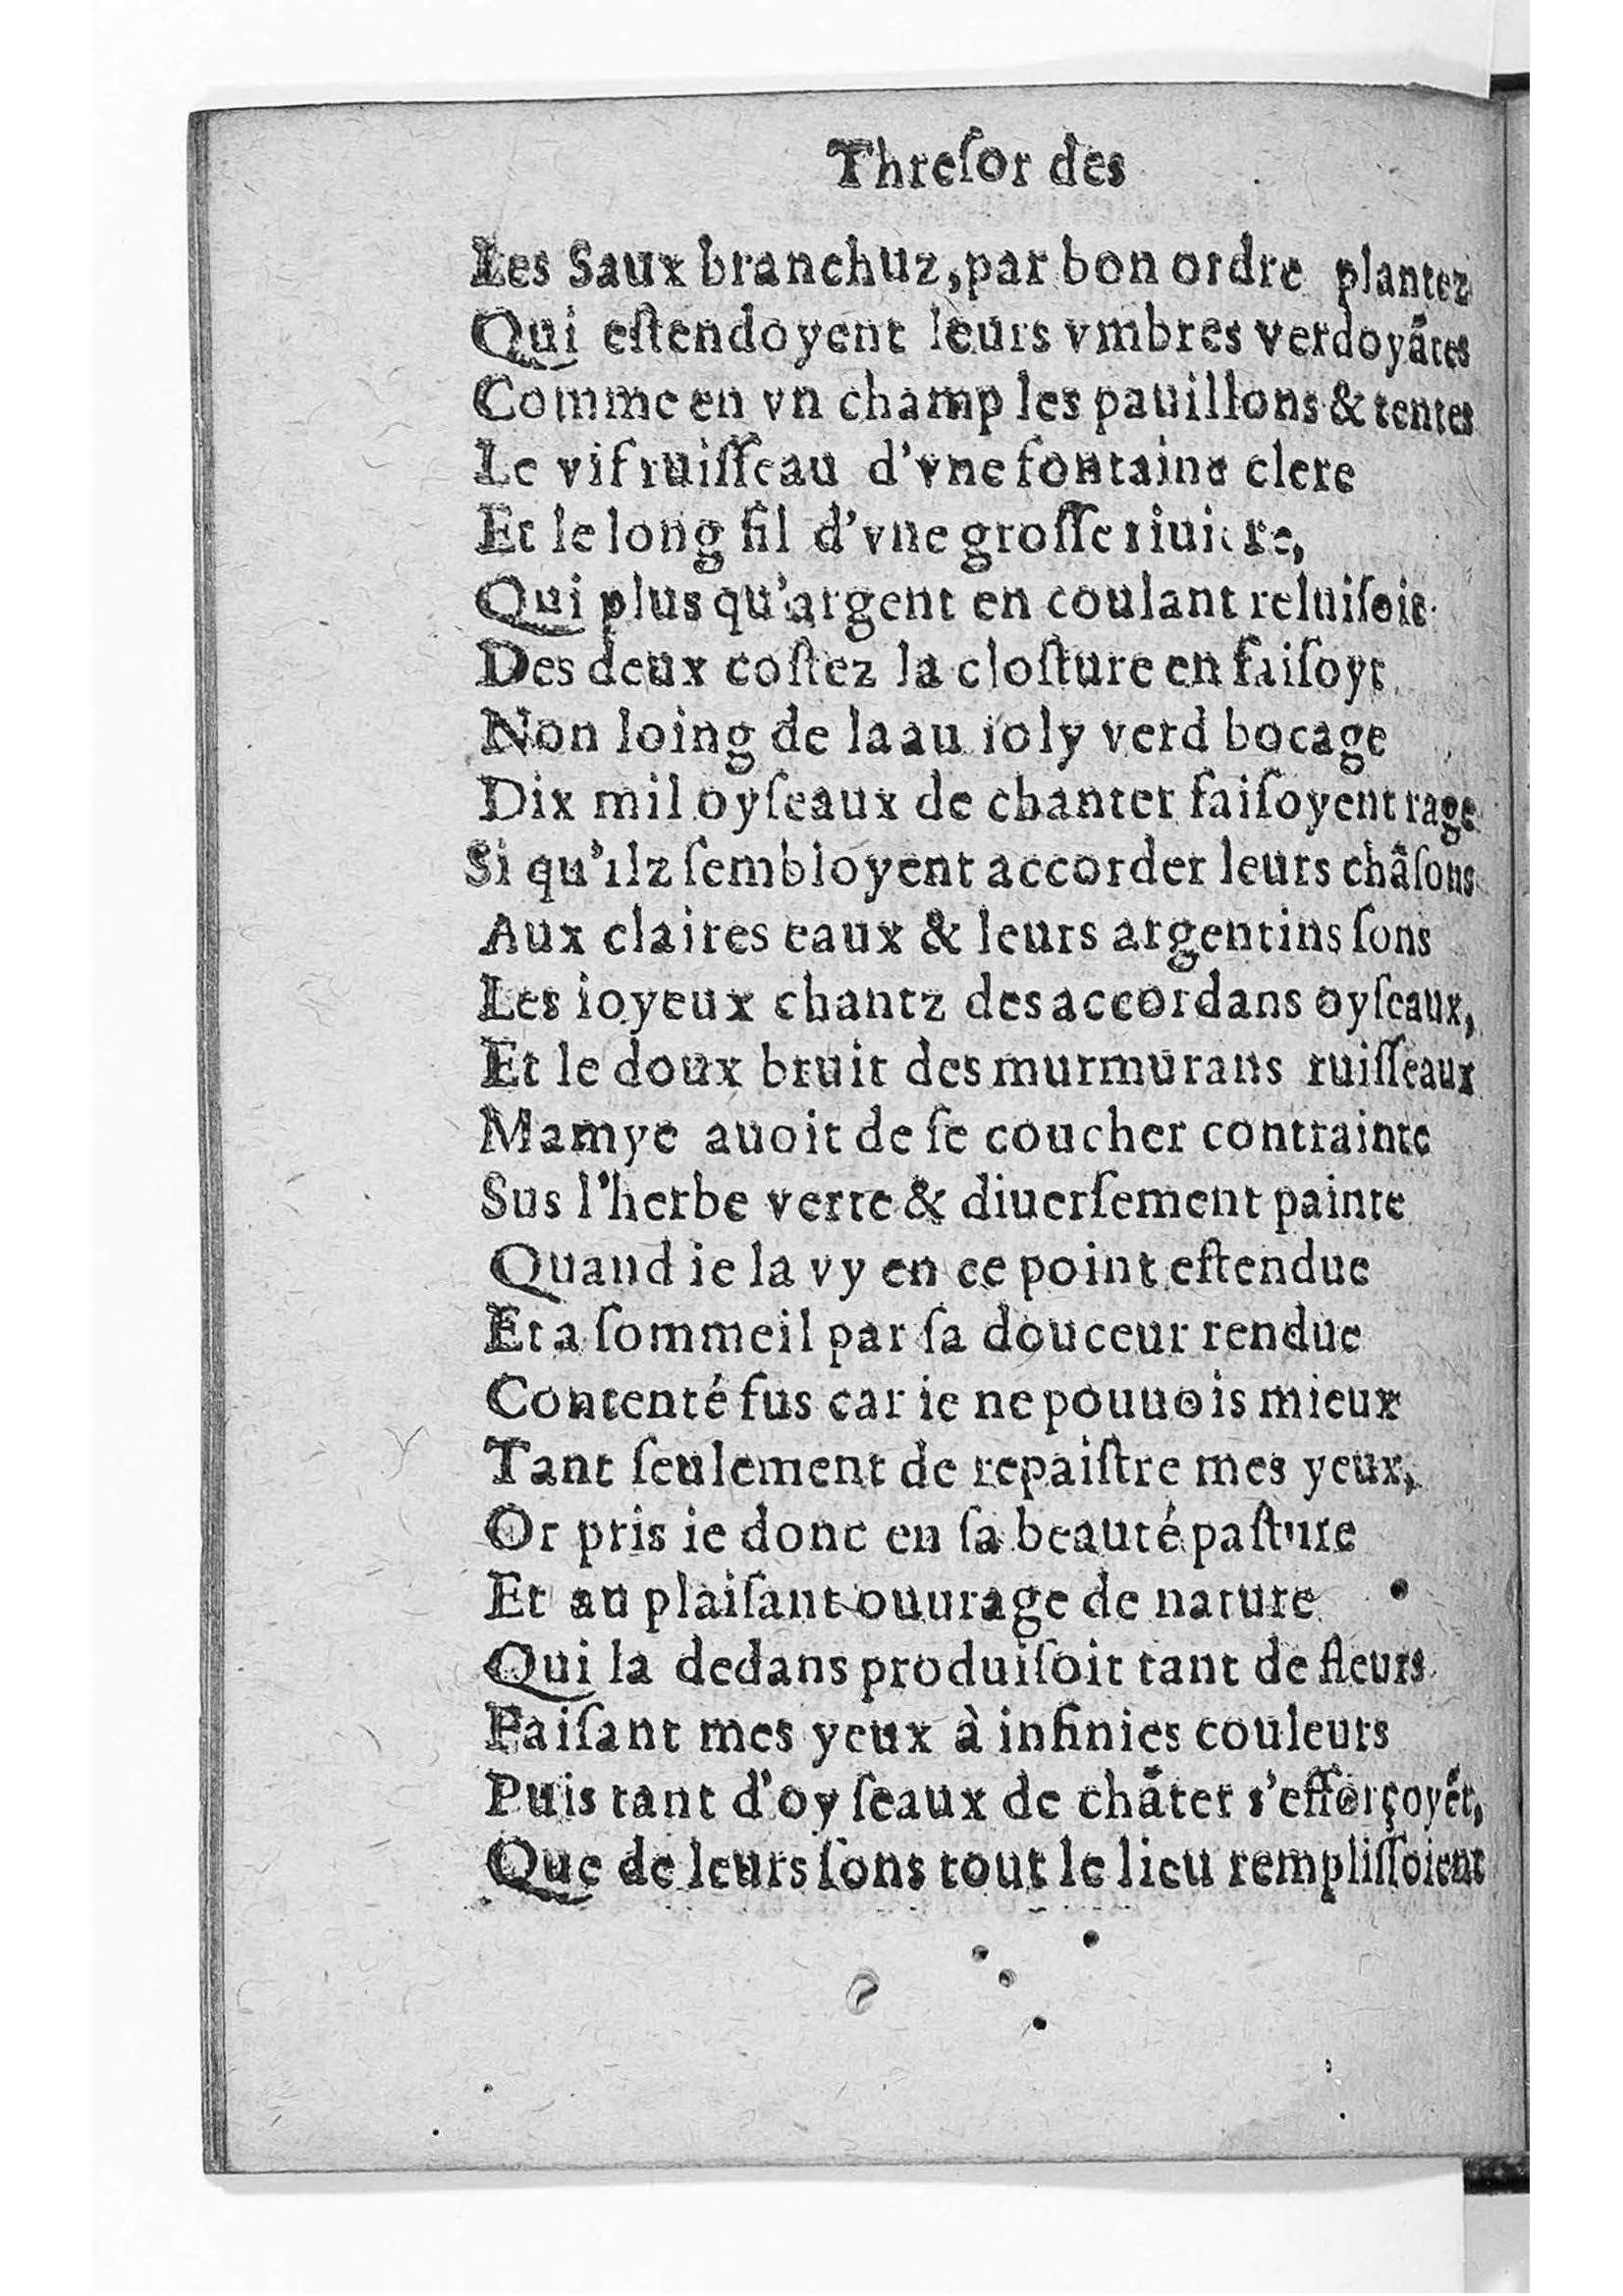 Threſor des
Les Saux branchuz, par bon ordre plantez
Qui eſtendoyent leurs vmbres verdoyãtes
Comme en vn champ les pauillons & tentes
Le vif ruiſſeau d'vne fontaine clere
Et le long fil d'vne groſſe riuiere,
Qui plus qu'argent en coulant reluiſoit
Des deux coſtez la cloſture en faiſoyt
Non loing de la au ioly verd bocage
Dix mil oyſeaux de chanter faiſoyent rage
Si qu'ilz ſembloyent accorder leurs chãſons
Aux claires eaux & leurs argentins ſons
Les ioyeux chantz des accordans oyſeaux,
Et le doux bruit des murmurans ruiſſeaux
Mamye auoit de ſe coucher contrainte
Sus l'herbe verte & diuerſement painte
Quand ie la vy en ce point eſtendue
Et a ſommeil par ſa douceur rendue
Contenté fus car ie ne pouuois mieux
Tant ſeulement de repaiſtre mes yeux,
Or pris ie donc en ſa beauté paſture
Et au plaiſant ouurage de nature
Qui la dedans produiſoit tant de fleurs
Faiſant mes yeux à infinies couleurs
Puis tant d'oyſeaux de chãter s'efforçoyẽt,
Que de leurs ſons tout le lieu rempliſſoient